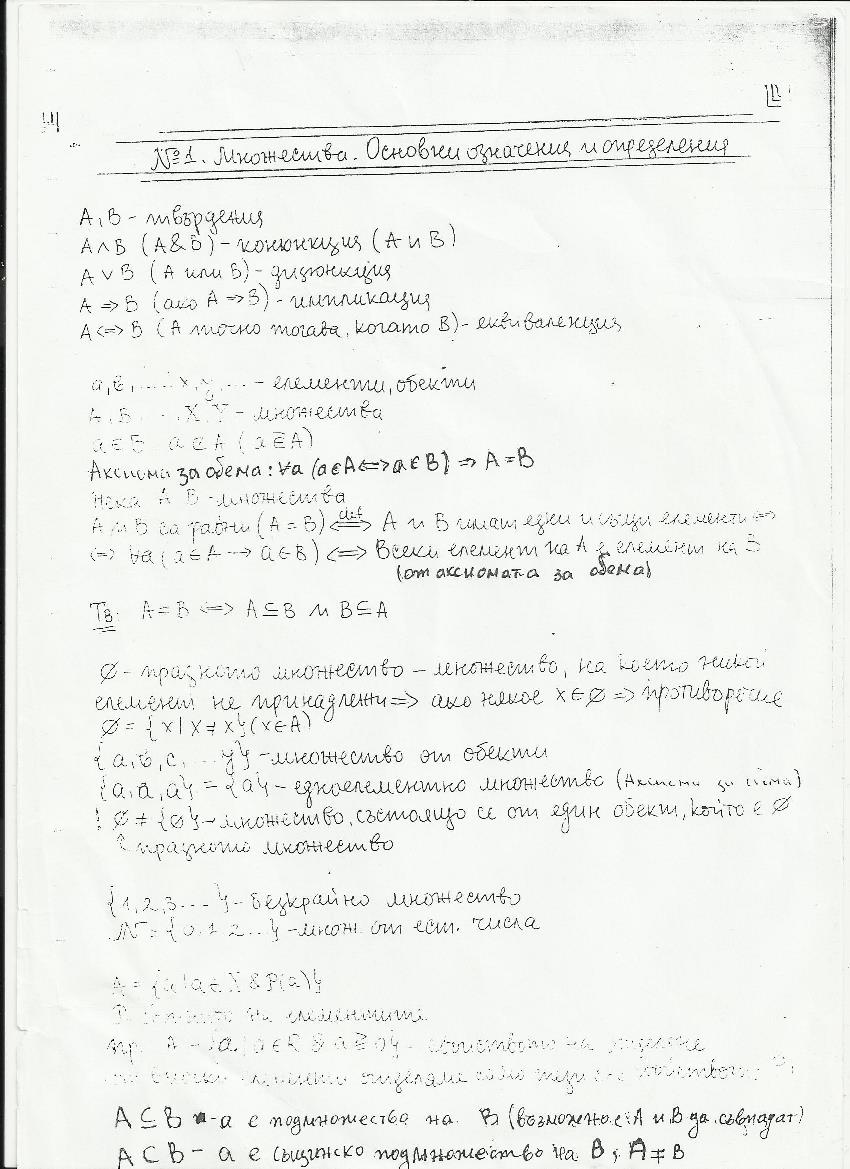 №1. Множества. Основни означения и определения
A, B - твърдения
A ∧ B (A & B) - конюнкция (A и B)
A ∨ B (A или B) - дизюнкция
A ⇒ B (ако A ⇒ B) - импликация
A ⇔ B (A точно тогава, когато B) - еквиваленция
a, b, ... x, y, ... - елементи, обекти
A, B ... X, Y - множества
a ∈ A (a ∉ A)
Аксиома за обема: ∀a (a∈A ⇔ a∈B) ⇒ A = B
Нека A B - множества
A и B са равни (A = B) ⇔ def A и B имат едни и същи елементи ⇔
⇔ ∀a (a ∈ A → a ∈ B) ⇔ Всеки елемент на A е елемент на B
(от аксиомата за обема)
Тв: A = B ⇔ A ⊆ B и B ⊆ A
∅ - празното множество - множество, на което никой
елемент не принадлежи ⇒ ако някое x ∈ ∅ ⇒ противоречие
∅ = {x | x ≠ x} (x ∈ A)
{a, b, c, ... y} - множество от обекти
{a, a, a} = {a} - едноелементно множество (Аксиома за обема)
! ∅ ≠ {∅} - множество, състоящо се от един обект, който е ∅
↑ празното множество
{1, 2, 3 ...} - безкрайно множество
N = {0, 1, 2 ...} - множ. от ест. числа
A = {a | a ∈ X & P(a)}
на елементите
пр. A = {a | a ∈ R & a ≥ 0} - свойството на
елементи отделяме само тези
A ⊆ B - a е подмножества на B (възможно е: A и B да съвпадат)
A ⊂ B - a е същинско подмножество на B, A ≠ B